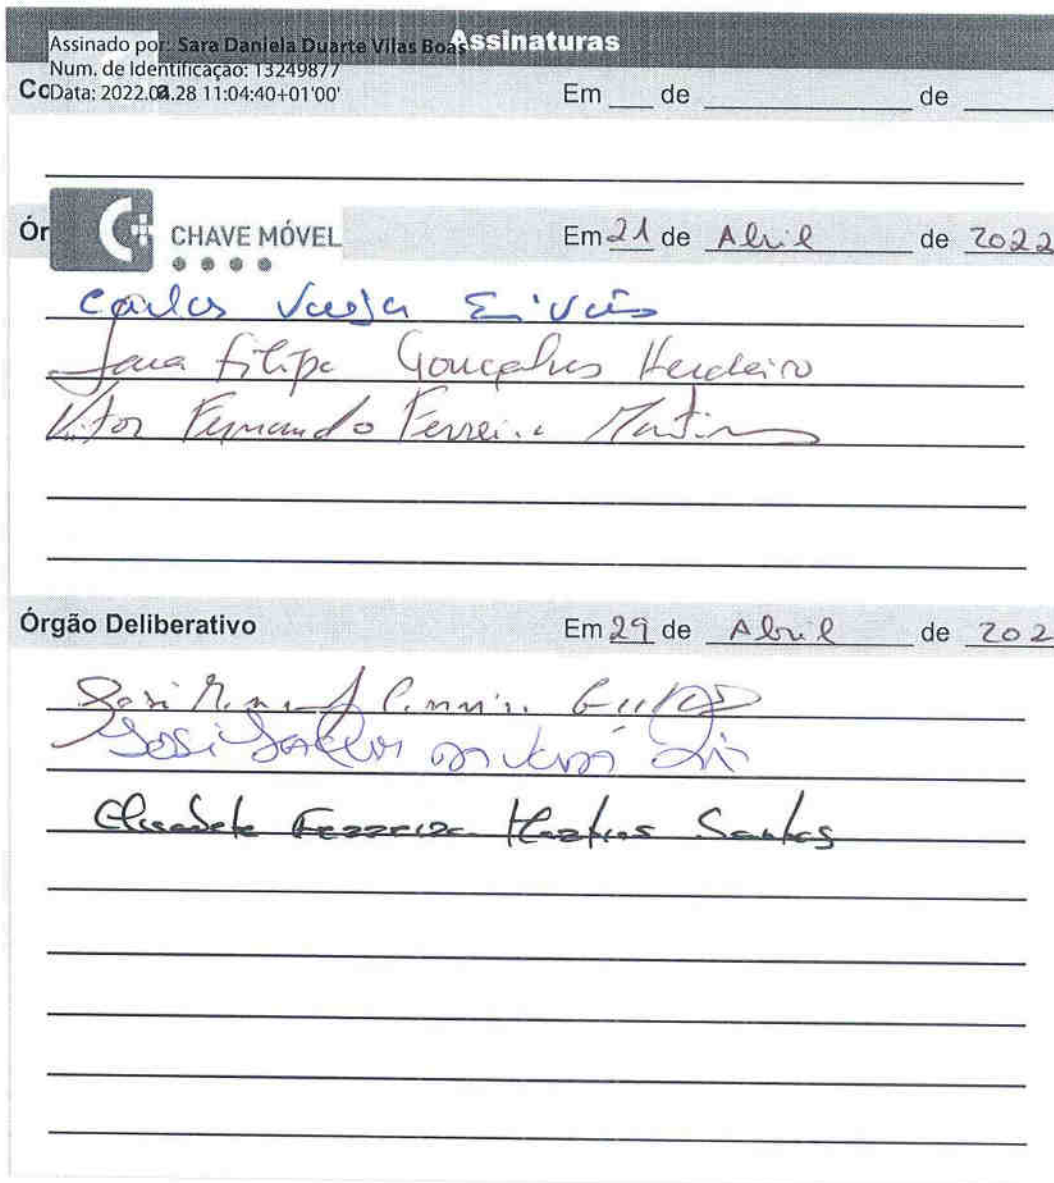 Assinaturas
Assinado por: Sara Daniela Duarte Vilas Boas
Num. de Identificação: 13249877
Co
Data: 2022.04.28 11:04:40+01'00'
Em ___ de ___ de ___
Ór
CHAVE MÓVEL
Em 21 de Abril de 2022
Carlos
Filipe Gonçalves Herdeiro
Vitor Fernando Ferreira Martins
Órgão Deliberativo
Em 29 de Abril de 202
José
José
Elisabete Ferreira Martins Santos